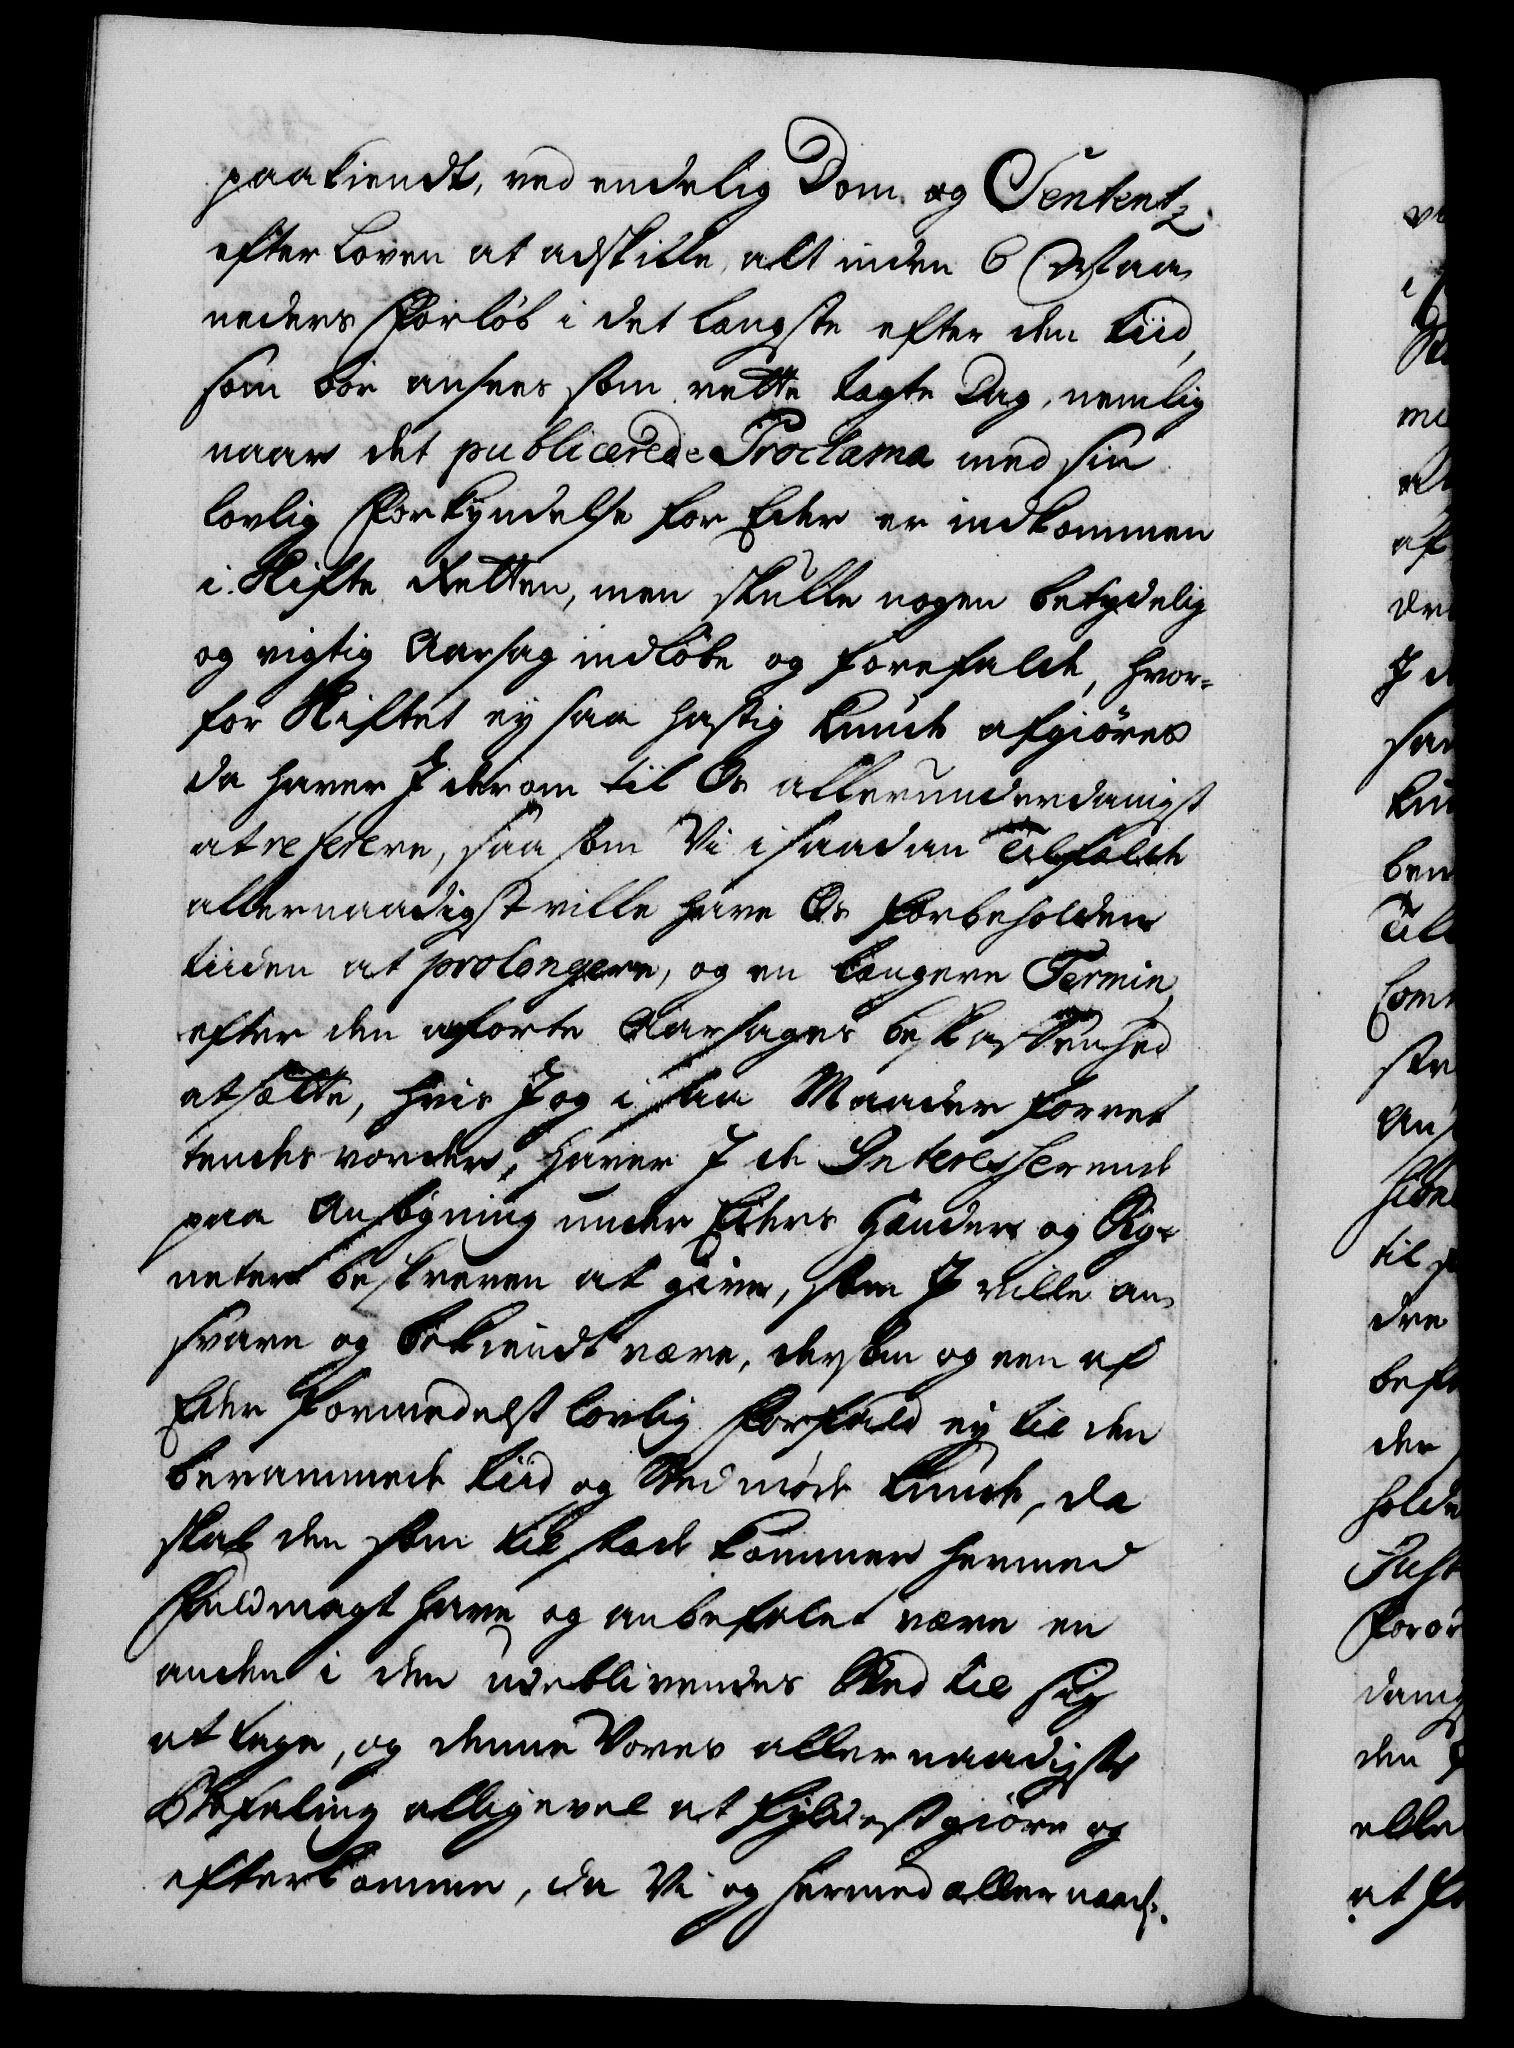 paakiendt, ved endelig Dom og Sententz
efter Loven at adskille, alt inden 6 Maa
neders Forløb i det længste efter den tiid,
som bør ansees som rette lagte Dag, nemlig
naar det publicerede Proclama med sin
lovlig Forkyndelse for Eder er indkommen
i Skifte Retten, men skulle nogen betydelig
og vigtig Aarsag indløbe og forefalde, hvor-
for Skiftet ey saa hastig kunde afgiøres
da haver I derom til Os allerunderdanigst
at referere, saa som Vi i saadan Tilfælde
allernaadigst ville have Os forbeholden
tiiden at prolongere, og en længere Termin
efter den anførte Aarsages beskaffenhed
at sætte, hvis I og i saa Maader forret
tendes vorder, haver I de Interesserende
paa Ansøgning under Eders Hænder og Sig-
neter beskreven at give, som I ville an-
svare og bekiendt være, dersom og een af
Eder formedelst lovlig forfald ey til den
berammede tiid og Sted møde kunde, da
skal den som tilstæde kommer hermed
fuldmagt have og anbefalet være en
anden i den udeblivendes Sted til sig
at tage, og denne Vores allernaadigste
Befaling alligevel at fyldestgiøre og
efterkomme, da Vi og hermed allernaad: